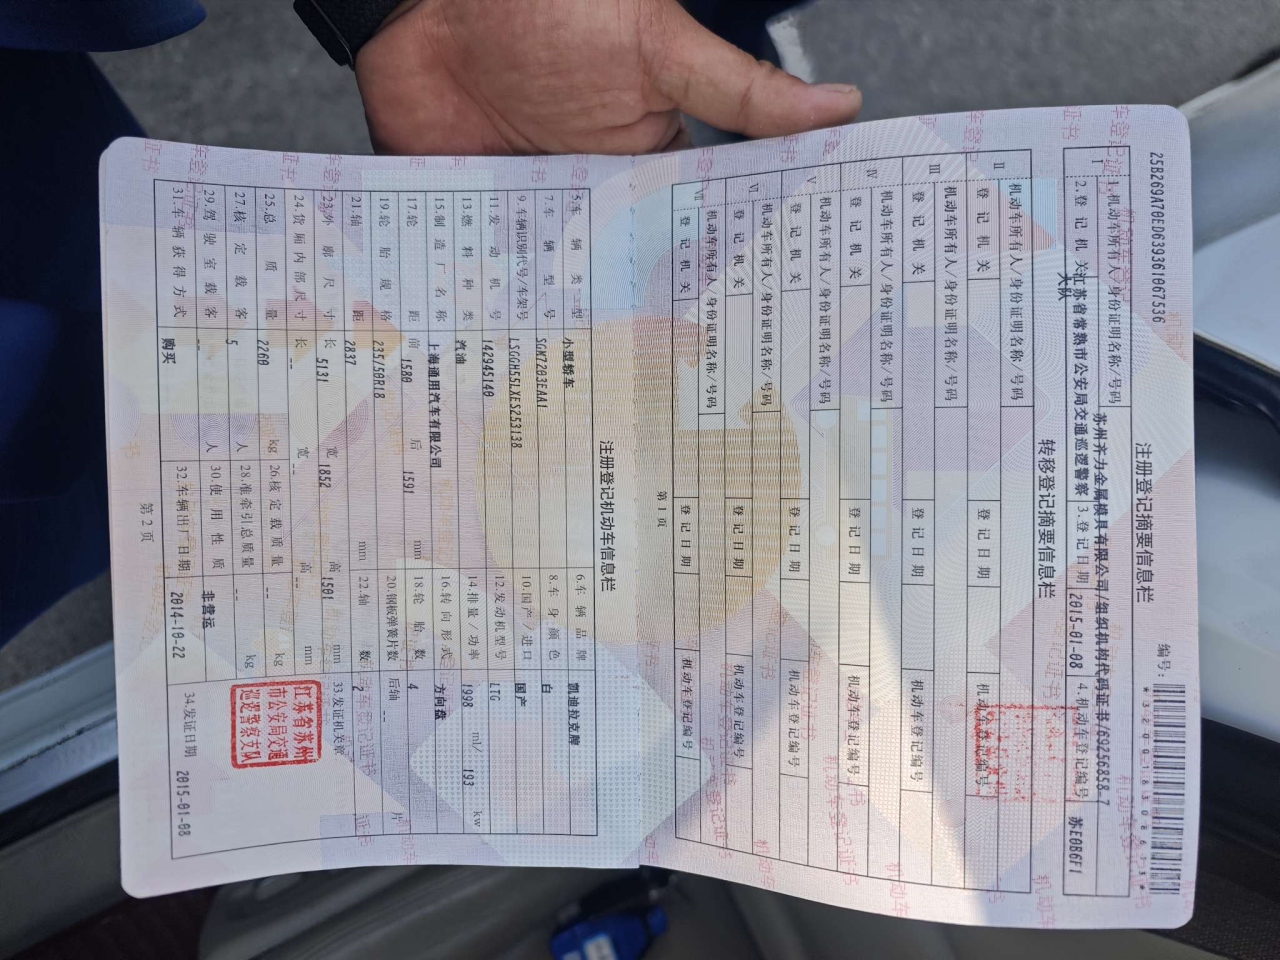 25B269A70ED639361067536
注册登记摘要信息栏
编号:
*320018508613*
I
1.机动车所有人/身份证明名称/号码 苏州齐力金属模具有限公司/组织机构代码证书/69256858-7
2.登记机关 江苏省常熟市公安局交通巡逻警察大队 3.登记日期 2015-01-08 4.机动车登记编号 苏E0B6F1
转移登记摘要信息栏
II
机动车所有人/身份证明名称/号码
登记机关 登记日期 机动车登记编号
III
机动车所有人/身份证明名称/号码
登记机关 登记日期 机动车登记编号
IV
机动车所有人/身份证明名称/号码
登记机关 登记日期 机动车登记编号
V
机动车所有人/身份证明名称/号码
登记机关 登记日期 机动车登记编号
VI
机动车所有人/身份证明名称/号码
登记机关 登记日期 机动车登记编号
VII
机动车所有人/身份证明名称/号码
登记机关 登记日期 机动车登记编号
第1页
注册登记机动车信息栏
5.车辆类型 小型轿车 6.车辆品牌 凯迪拉克牌
7.车辆型号 SGM7203EAA1 8.车身颜色 白
9.车辆识别代号/车架号 LSGGH55LXES253138 10.国产/进口 国产
11.发动机号 142945140 12.发动机型号 LTG
13.燃料种类 汽油 14.排量/功率 1998 ml/ 193 kw
15.制造厂名称 上海通用汽车有限公司 16.转向形式 方向盘
17.轮距 前 1580 后 1591 mm 18.轮胎数 4
19.轮胎规格 235/50R18 20.钢板弹簧片数 后轴 -- 片
21.轴距 2837 mm 22.轴数 2
23.外廓尺寸 长 5131 宽 1852 高 1501 mm 33.发证机关章
24.货厢内部尺寸 长 -- 宽 -- 高 -- mm
25.总质量 2260 kg 26.核定载质量 -- kg
27.核定载客 5 人 28.准牵引总质量 -- kg
29.驾驶室载客 -- 人 30.使用性质 非营运
31.车辆获得方式 购买 32.车辆出厂日期 2014-10-22 34.发证日期 2015-01-08
江苏省苏州
市公安局交通
巡逻警察支队
第2页